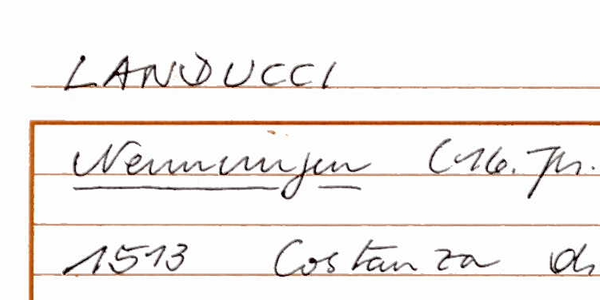 LANDUCCI
Nennungen (16. Jh.
1513 Costanza di